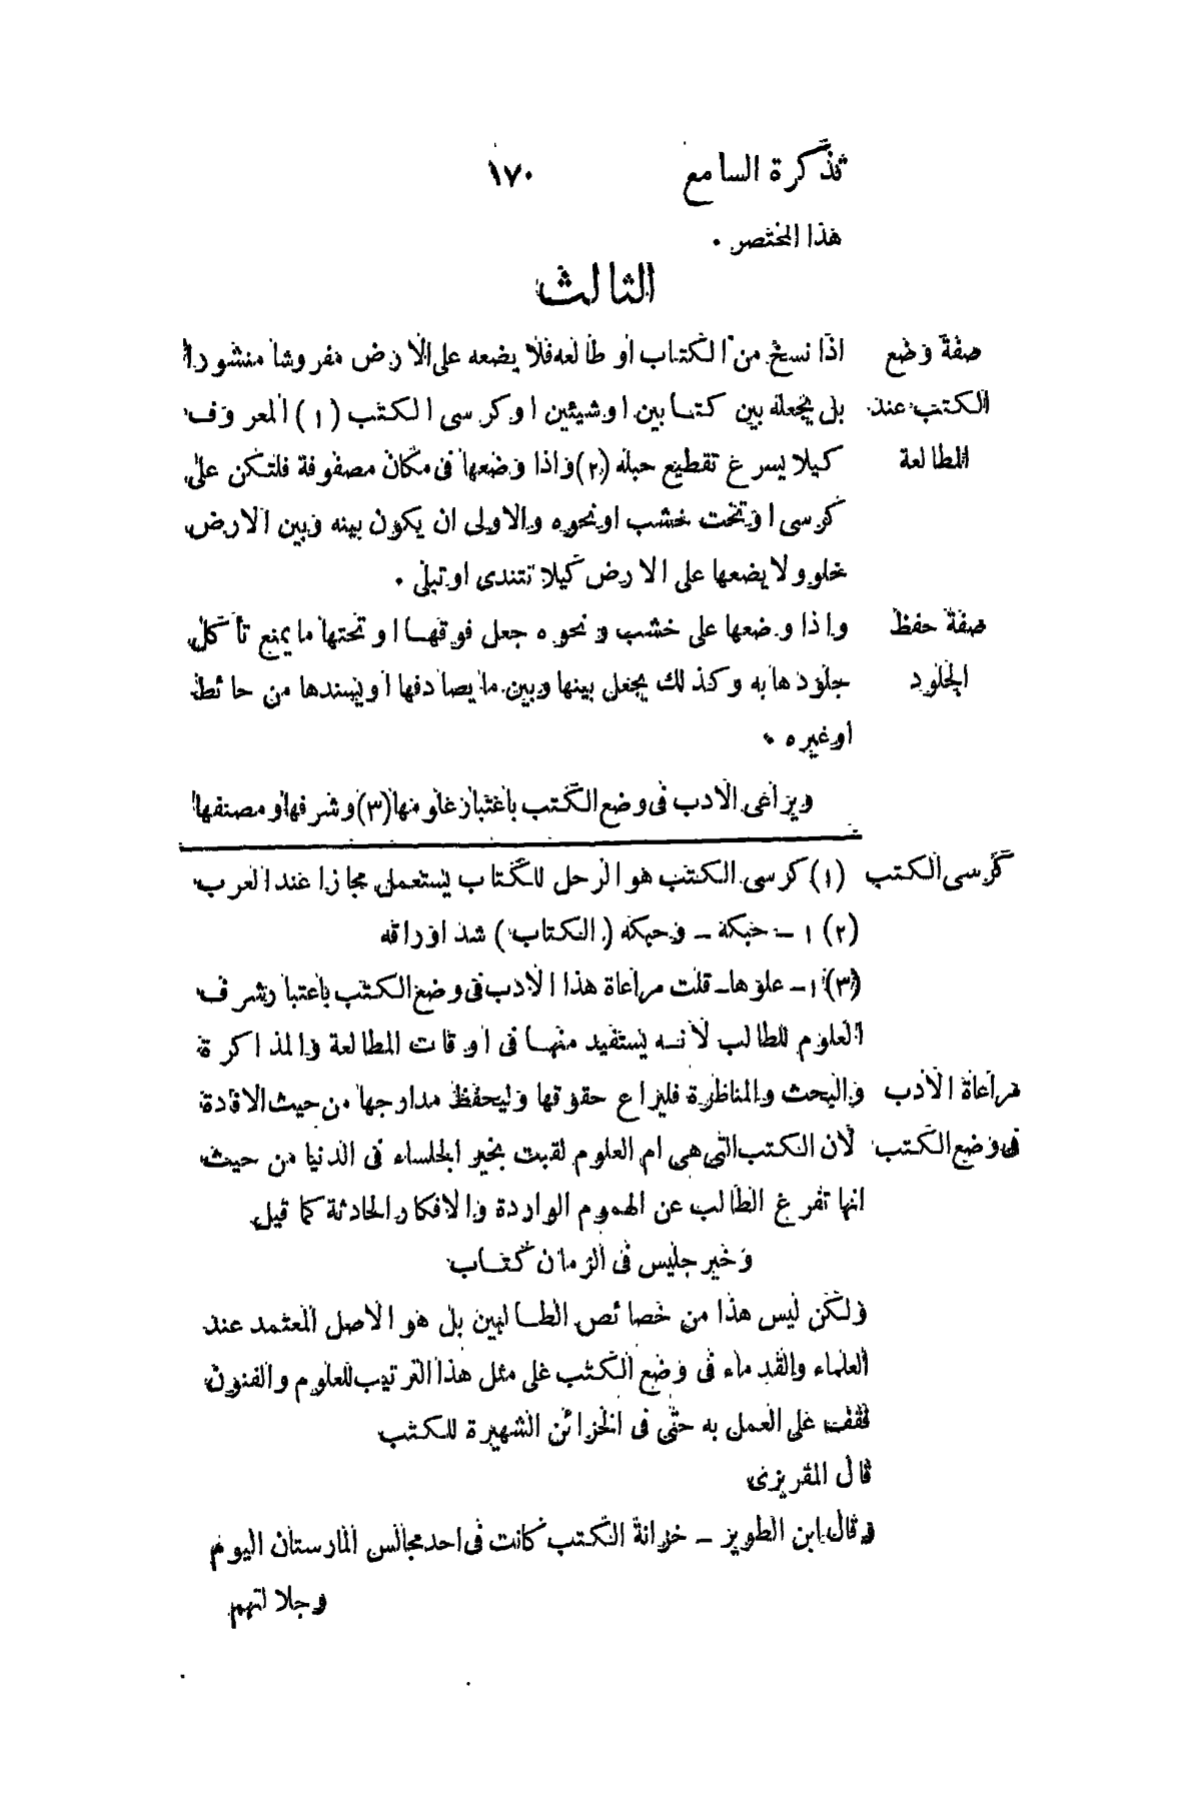 تذكرة السامع ١٧٠
هذا المختصر .
الثالث
صفة وضع اذا نسخ من الكتاب او طالعه فلا يضعه على الارض مفروشا منشورا
الكتب عند بل يجعله بين كتابين او شيئين او كرسى الكتب (١) المعروف
المطالعة كيلا يسرع تقطيع حبله (٢) واذا وضعها فى مكان مصفوفة فلتكن على
كرسى او تخت خشب او نحوه والاولى ان يكون بينه وبين الارض
خلو ولا يضعها على الارض كيلا تتندى او تبلى .
صفة حفظ واذا وضعها على خشب و نحوه جعل فوقها او تحتها ما يمنع تأكل
الجلود جلودها به وكذلك يجعل بينها وبين ما يصادفها او يسندها من حائط
او غيره .
ويراعى الادب فى وضع الكتب باعتبار علومها (٣) وشرفها ومصنفها
كرسى الكتب (١) كرسى الكتب هو الرحل للكتاب يستعمل مجازا عند العرب
(٢) ١ – حبكة – وحبكه (الكتاب) شد اوراقه
(٣) ١ – علوها – قلت مراعاة هذا الادب فى وضع الكتب باعتبار شرف
العلوم للطالب لأنه يستفيد منها فى اوقات المطالعة والمذاكرة
مراعاة الادب والبحث والمناظرة فليراع حقوقها وليحفظ مدارجها من حيث الافادة
فى وضع الكتب لأن الكتب التى هى ام العلوم لقبت بخير الجلساء فى الدنيا من حيث
انها تفرغ الطالب عن الهموم الواردة والافكار الحادثة كما قيل
وخير جليس فى الزمان كتاب
ولكن ليس هذا من خصائص الطالبين بل هو الاصل المعتمد عند
العلماء والقدماء فى وضع الكتب على مثل هذا الترتيب للعلوم والفنون
فقف على العمل به حتى فى الخزائن الشهيرة للكتب
قال المقريزى
وقال ابن الطوير – خزانة الكتب كانت فى احد مجالس المارستان اليوم
وجلالتهم